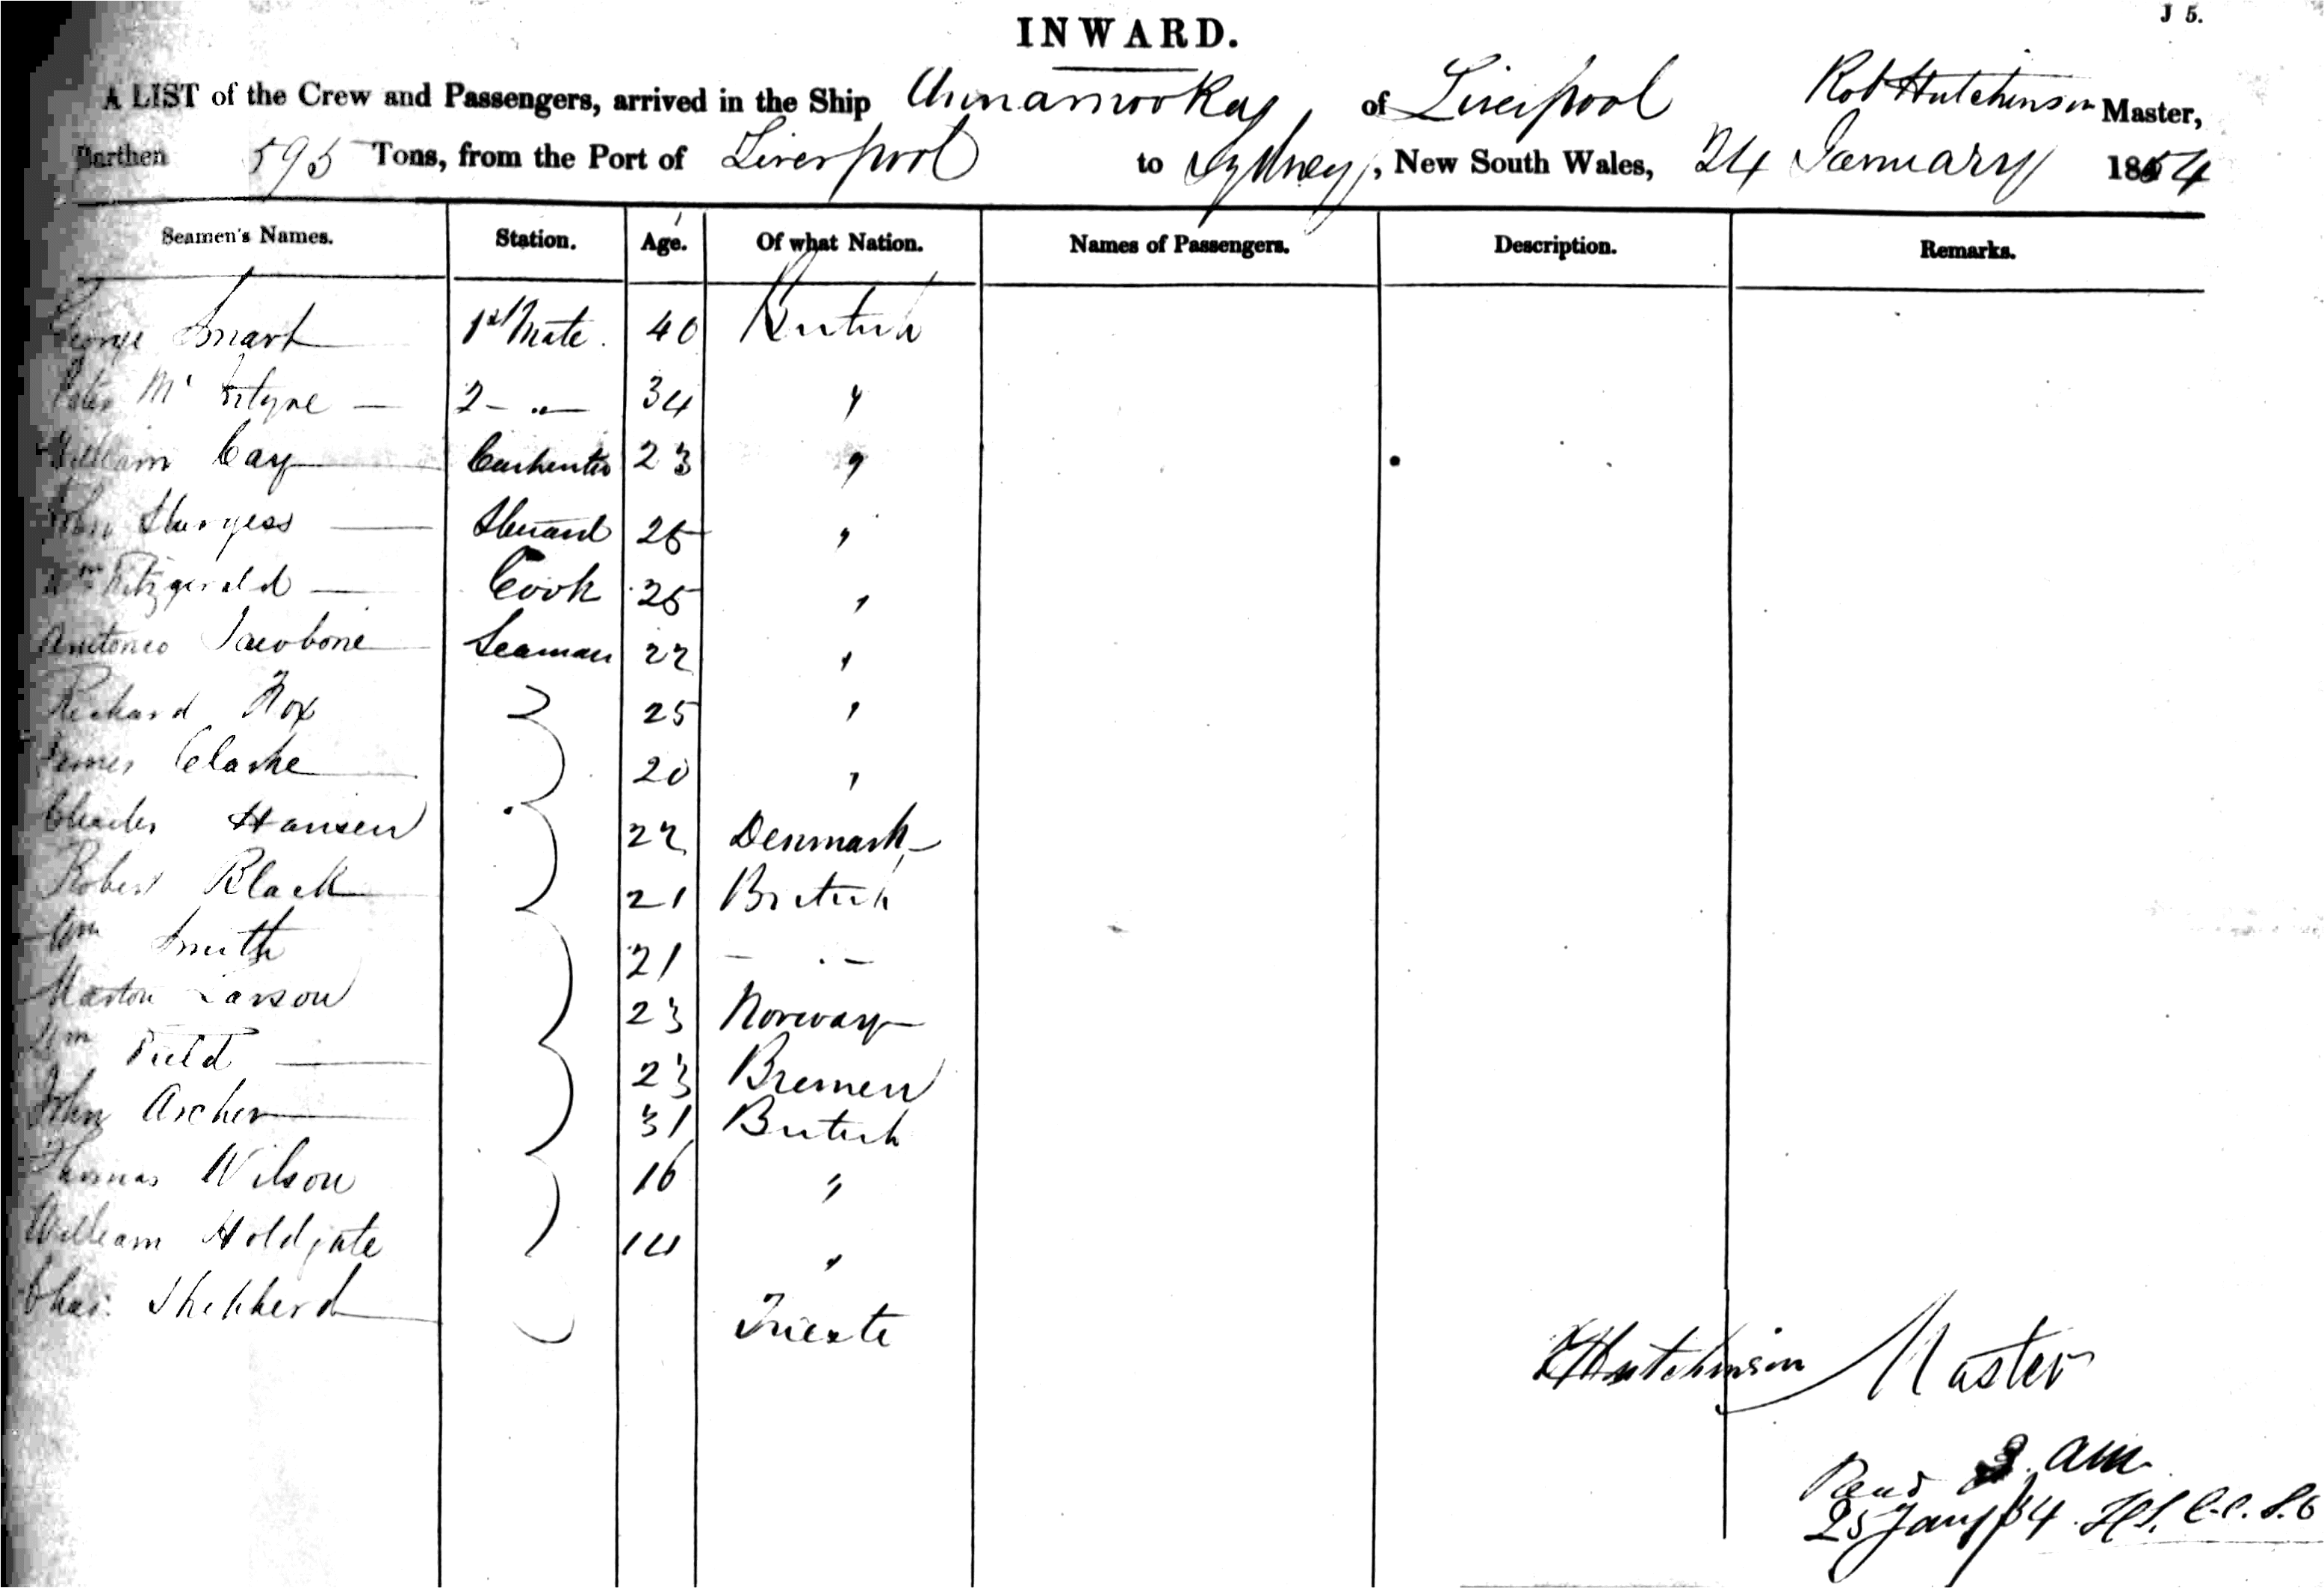 J 5.
INWARD.
A LIST of the Crew and Passengers, arrived in the Ship Annamooka, of Liverpool Rob Hutchinson Master,
Burthen 595 Tons, from the Port of Liverpool to Sydney, New South Wales, 24 January 1854
Seamen's Names. Station. Age. Of what Nation. Names of Passengers. Description. Remarks.
George Smart 1st Mate. 40 British
Peter McIntyre — 2 - " — 34 "
William Cay Carpenter 23 "
John Sturgess — Steward 25 "
Wm Fitzgerald — Cook 25 "
Antonio Jacobone Seaman 22 "
Richard Fox 25 "
James Clarke 20 "
Charles Hansen 22 Denmark
Robert Black 21 British
Wm Smith 21 - " -
Martin Larson 23 Norway
Wm Field — 23 Bremen
John Archer 31 British
Thomas Wilson 16 "
William Holdgate 14 "
Chas. Shepherd Trieste
R Hutchinson Master
am
25 Jany /54